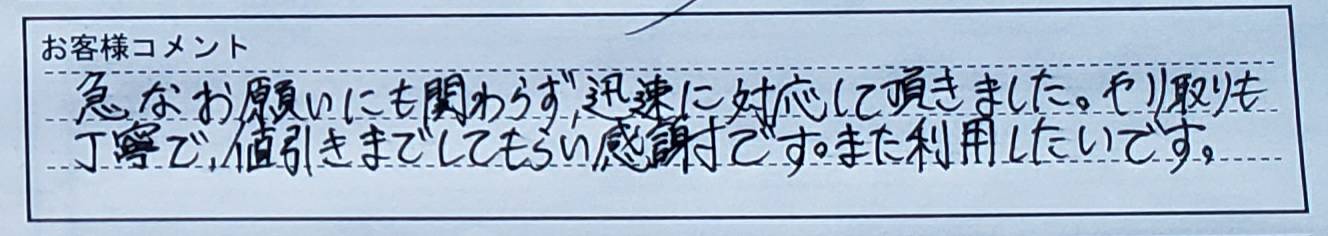 お客様コメント
急なお願いにも関わらず、迅速に対応して頂きました。やり取りも
丁寧で、値引きまでしてもらい感謝です。また利用したいです。